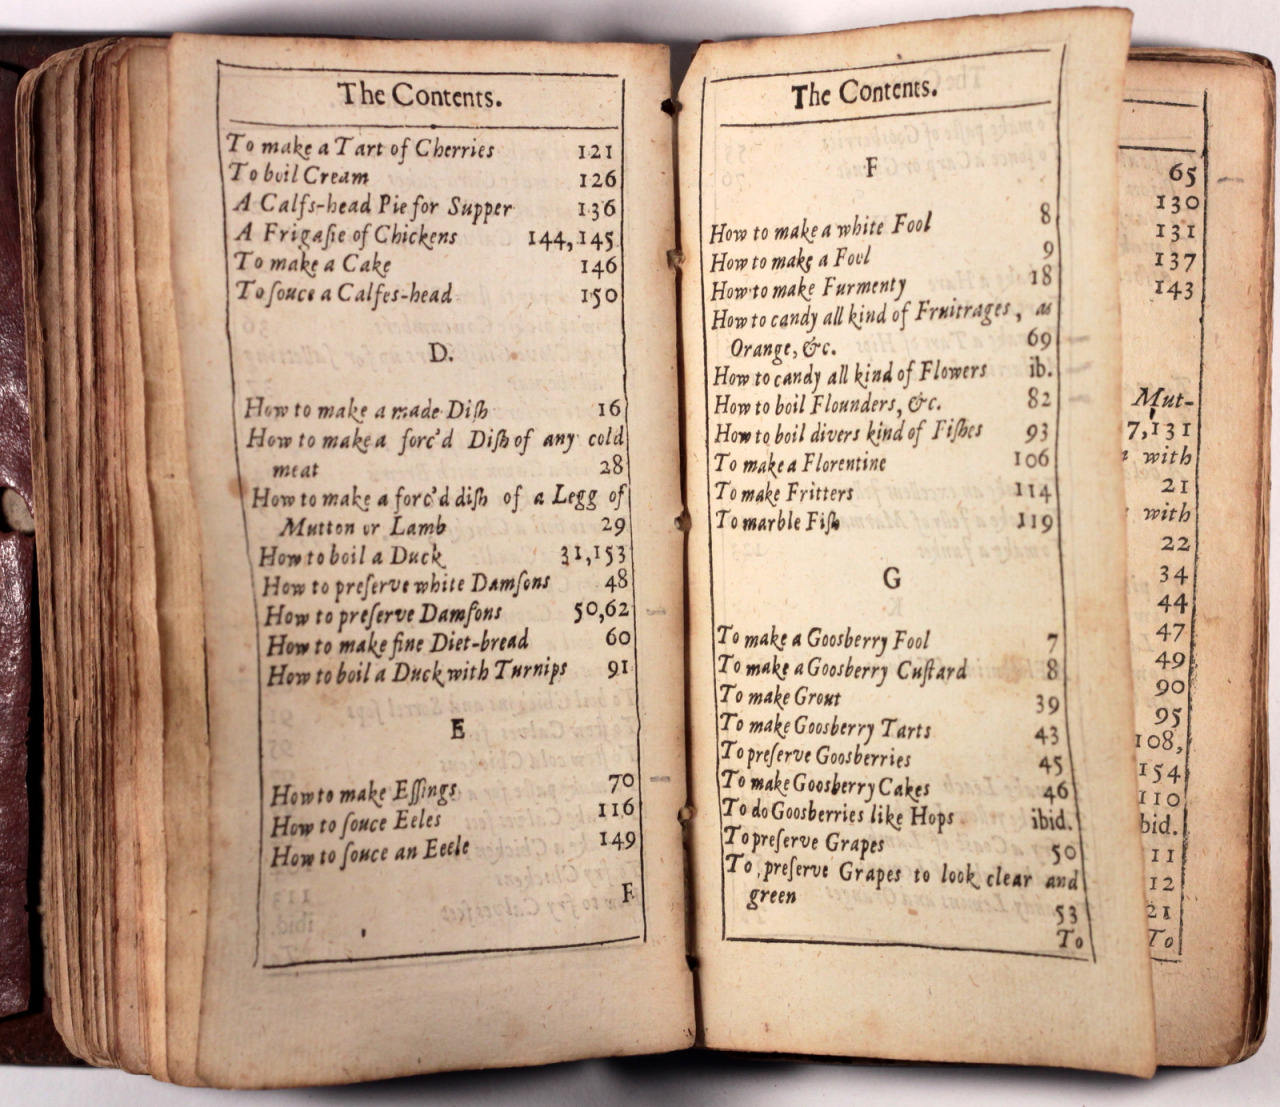 The Contents.
To make a Tart of Cherries 121
To boil Cream 126
A Calfs-head Pie for Supper 136
A Frigasie of Chickens 144,145
To make a Cake 146
To souce a Calfes-head 150
D.
How to make a made Dish 16
How to make a forc'd Dish of any cold
meat 28
How to make a forc'd dish of a Legg of
Mutton or Lamb 29
How to boil a Duck 31,153
How to preserve white Damsons 48
How to preserve Damsons 50,62
How to make fine Diet-bread 60
How to boil a Duck with Turnips 91
E
How to make Essings 70
How to souce Eeles 116
How to souce an Eeele 149
F
The Contents.
F
How to make a white Fool 8
How to make a Fool 9
How to make Furmenty 18
How to candy all kind of Fruitrages, as
Orange, &c. 69
How to candy all kind of Flowers ib.
How to boil Flounders, &c. 82
How to boil divers kind of Fishes 93
To make a Florentine 106
To make Fritters 114
To marble Fish 119
G
To make a Goosberry Fool 7
To make a Goosberry Custard 8
To make Grout 39
To make Goosberry Tarts 43
To preserve Goosberries 45
To make Goosberry Cakes 46
To do Goosberries like Hops ibid.
To preserve Grapes 50
To preserve Grapes to look clear and
green 53
To
65
130
131
137
143
Mut-
7,131
with
21
with
22
34
44
47
49
90
95
108,
154
110
bid.
11
12
21
To